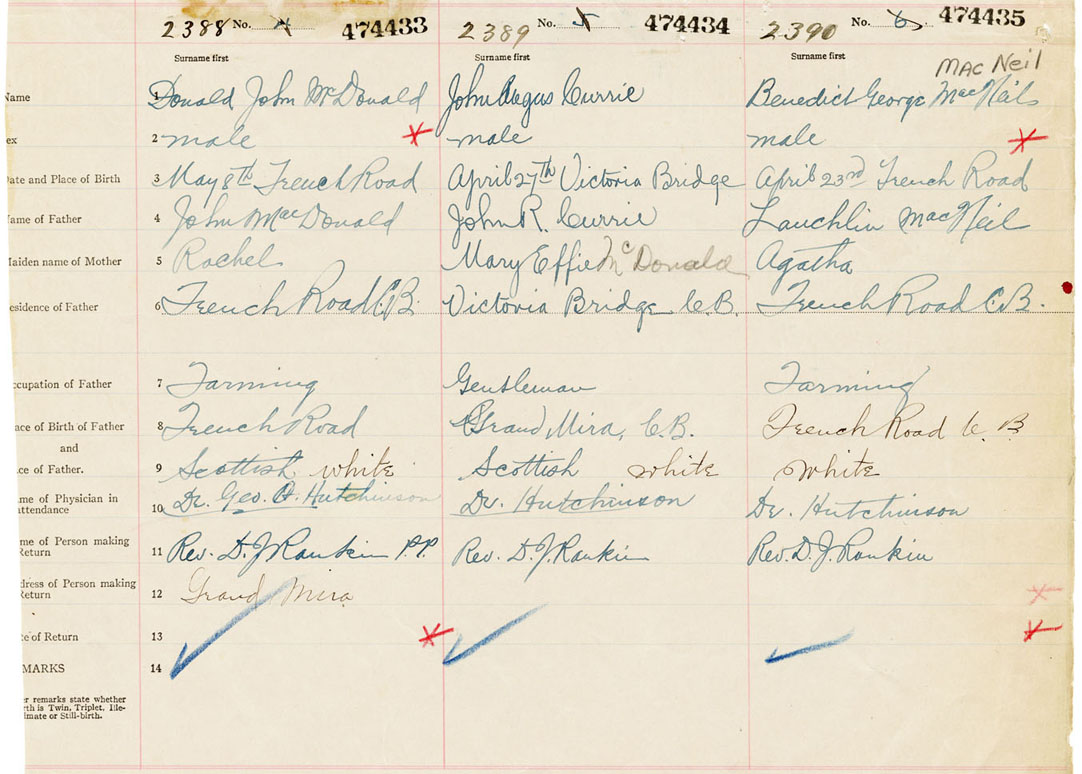 2388 No. 4 474433 2389 No. 5 474434 2390 No. 6 474435
Surname first Surname first Surname first Mac Neil
Name 1 Donald John McDonald John Angus Currie Benedict George MacNeil
ex 2 male male male
ate and Place of Birth 3 May 8th French Road April 27th Victoria Bridge April 23rd French Road
ame of Father 4 John MacDonald John R. Currie Lauchlin MacNeil
aiden name of Mother 5 Rachel Mary Effie McDonald Agatha
esidence of Father 6 French Road C.B. Victoria Bridge C.B. French Road C.B.
ccupation of Father 7 Farming Gentleman Farming
ace of Birth of Father 8 French Road Grand Mira, C.B. French Road C. B
and
ce of Father. 9 Scottish white Scottish white White
me of Physician in
attendance 10 Dr. Geo. H. Hutchinson Dr. Hutchinson Dr. Hutchinson
me of Person making
Return 11 Rev. D. J. Rankin P.P. Rev. D. J. Rankin Rev. D. J. Rankin
dress of Person making
Return 12 Grand Mira
te of Return 13
MARKS 14
er remarks state whether
rth is Twin, Triplet, Ille-
imate or Still-birth.